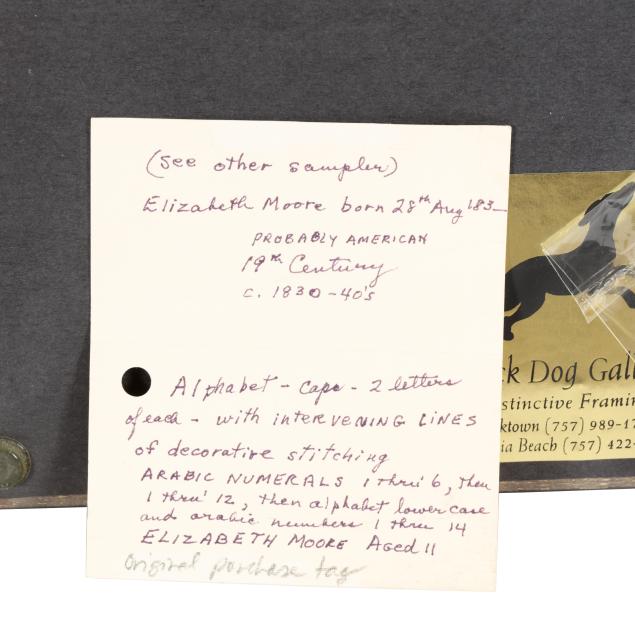 (see other sampler)
Elizabeth Moore born 28th Aug 183_
PROBABLY AMERICAN
19th Century
c. 1830-40's
Alphabet - caps - 2 letters
of each - with intERVENING LINES
of decorative stitching
ARABIC NUMERALS 1 thru' 6, then
1 thru' 12, then alphabet lower case
and arabic numbers 1 thru 14
ELIZABETH MOORE Aged 11
Original purchase tag
ck Dog Gall
stinctive Framin
ktown (757) 989-17
ia Beach (757) 422-